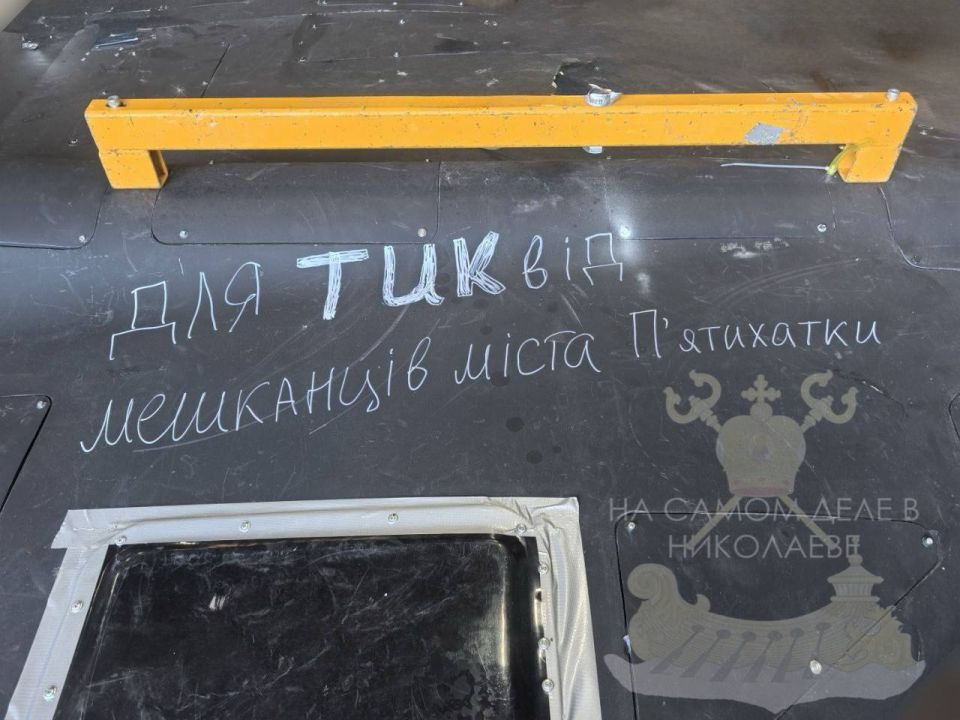 для ТЦК від
мешканців міста П'ятихатки
НА САМОМ ДЕЛЕ В
НИКОЛАЕВЕ